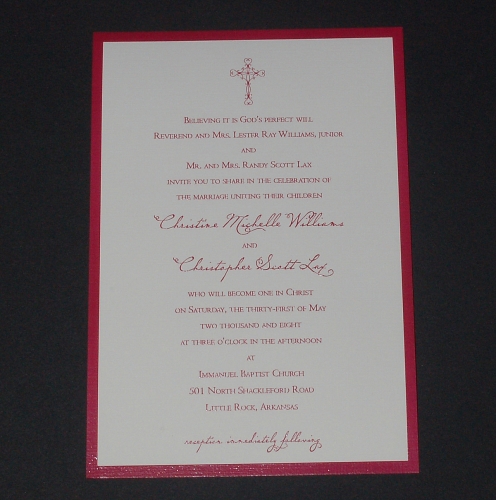 Believing it is God's perfect will
Reverend and Mrs. Lester Ray Williams, junior
and
Mr. and Mrs. Randy Scott Lax
invite you to share in the celebration of
the marriage uniting their children
Christine Michelle Williams
and
Christopher Scott Lax
who will become one in Christ
on Saturday, the thirty-first of May
two thousand and eight
at three o'clock in the afternoon
at
Immanuel Baptist Church
501 North Shackleford Road
Little Rock, Arkansas
reception immediately following